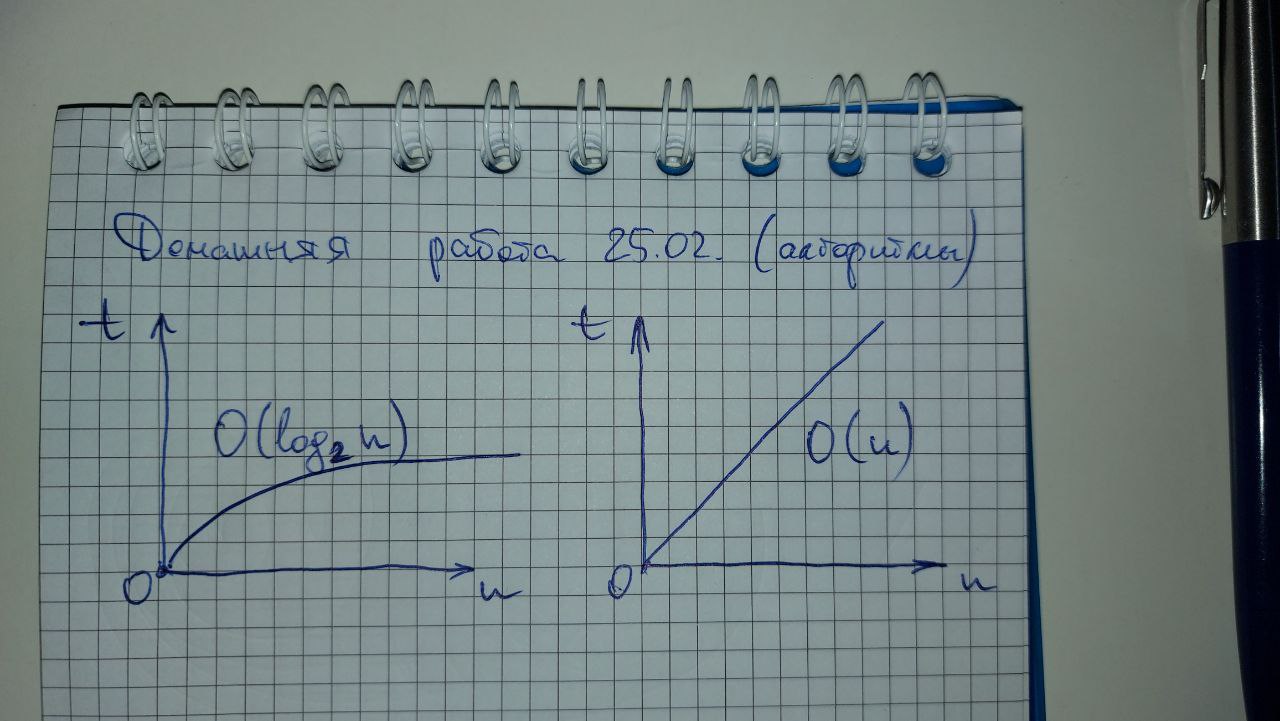 Домашняя работа 25.02. (алгоритмы)
t t
O(log₂n) O(n)
0 n 0 n